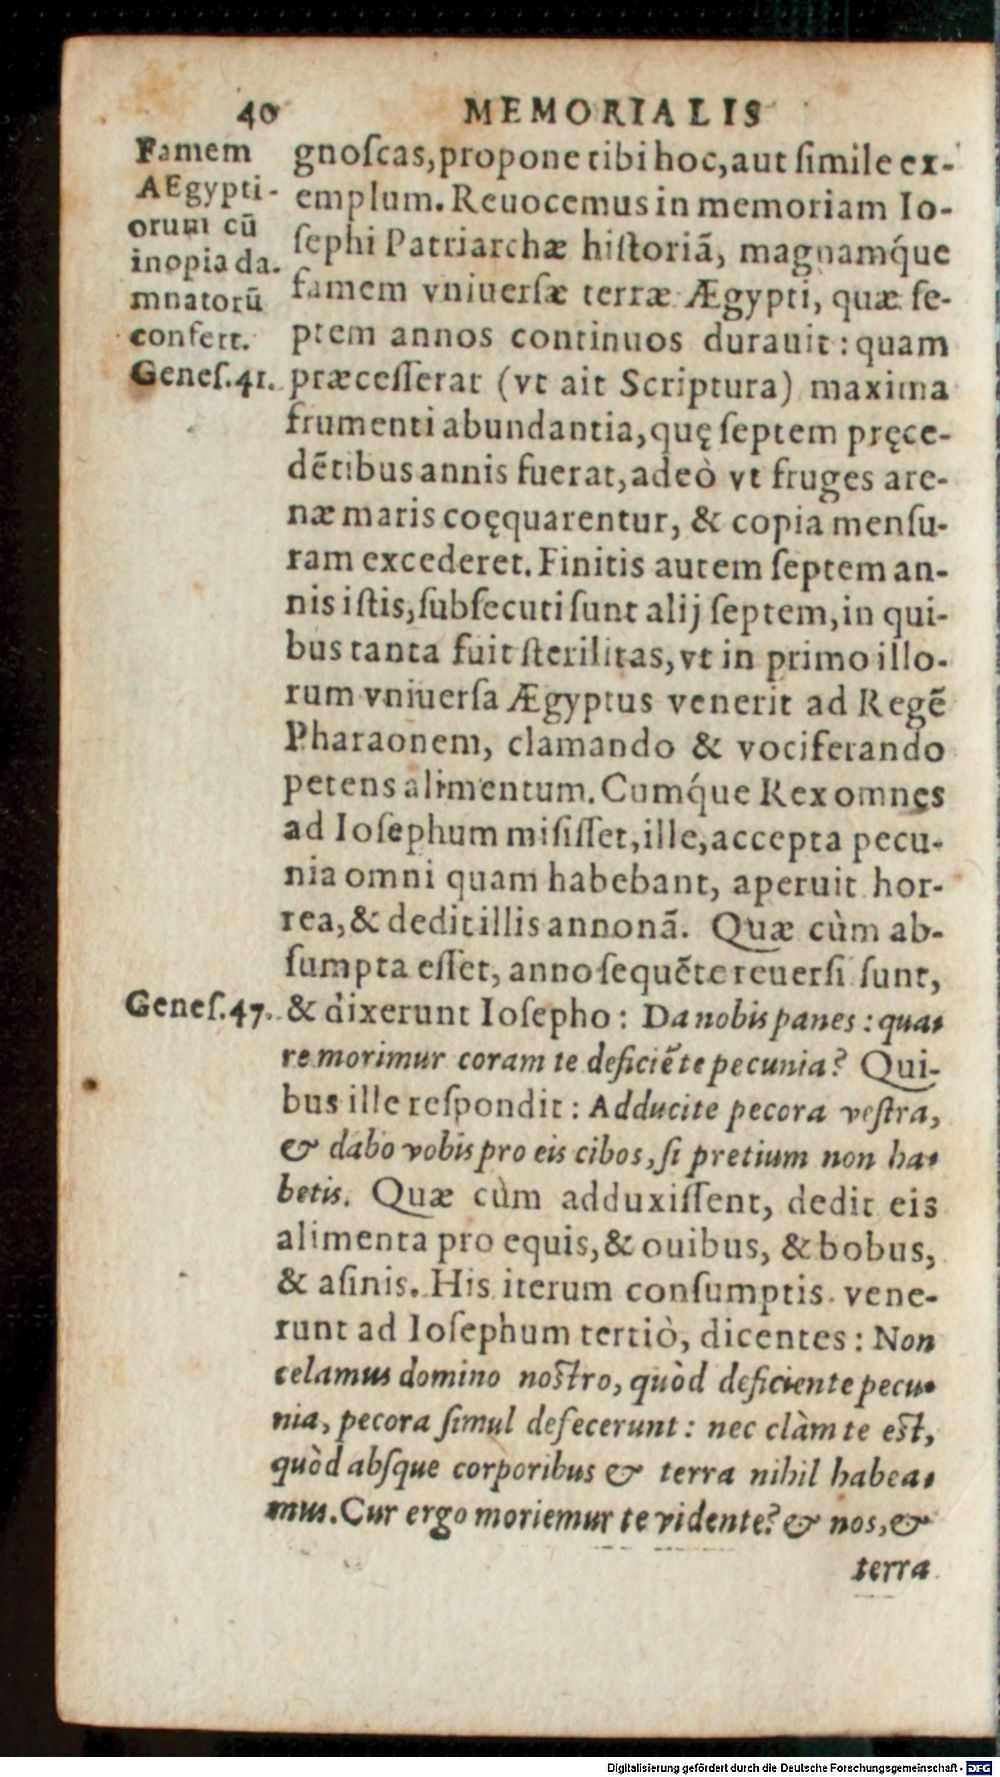 40 MEMORIALIS
Famem
AEgypti-
orum cū
inopia da-
mnatorū
confert.
Genes.41.
gnoſcas, propone tibi hoc, aut ſimile ex-
emplum. Reuocemus in memoriam Io-
ſephi Patriarchæ hiſtoriā, magnamq́ue
famem vniuerſæ terræ Ægypti, quæ ſe-
ptem annos continuos durauit: quam
præceſſerat (vt ait Scriptura) maxima
frumenti abundantia, quę ſeptem pręce-
dētibus annis fuerat, adeò vt fruges are-
næ maris coęquarentur, & copia menſu-
ram excederet. Finitis autem ſeptem an-
nis iſtis, ſubſecuti ſunt alij ſeptem, in qui-
bus tanta fuit ſterilitas, vt in primo illo-
rum vniuerſa Ægyptus venerit ad Regē
Pharaonem, clamando & vociferando
petens alimentum. Cumq́ue Rex omnes
ad Ioſephum miſiſſet, ille, accepta pecu-
nia omni quam habebant, aperuit hor-
rea, & dedit illis annonā. Quæ cùm ab-
ſumpta eſſet, anno ſequēte reuerſi ſunt,
Geneſ.47. & dixerunt Ioſepho: Da nobis panes: qua-
re morimur coram te deficiēte pecunia? Qui-
bus ille reſpondit: Adducite pecora veſtra,
& dabo vobis pro eis cibos, ſi pretium non ha-
betis. Quæ cùm adduxiſſent, dedit eis
alimenta pro equis, & ouibus, & bobus,
& aſinis. His iterum conſumptis vene-
runt ad Ioſephum tertiò, dicentes: Non
celamus domino noſtro, quòd deficiente pecu-
nia, pecora ſimul defecerunt: nec clàm te eſt,
quòd abſque corporibus & terra nihil habea-
mus. Cur ergo moriemur te vidente? & nos, &
terra
Digitalisierung gefördert durch die Deutsche Forschungsgemeinschaft - DFG